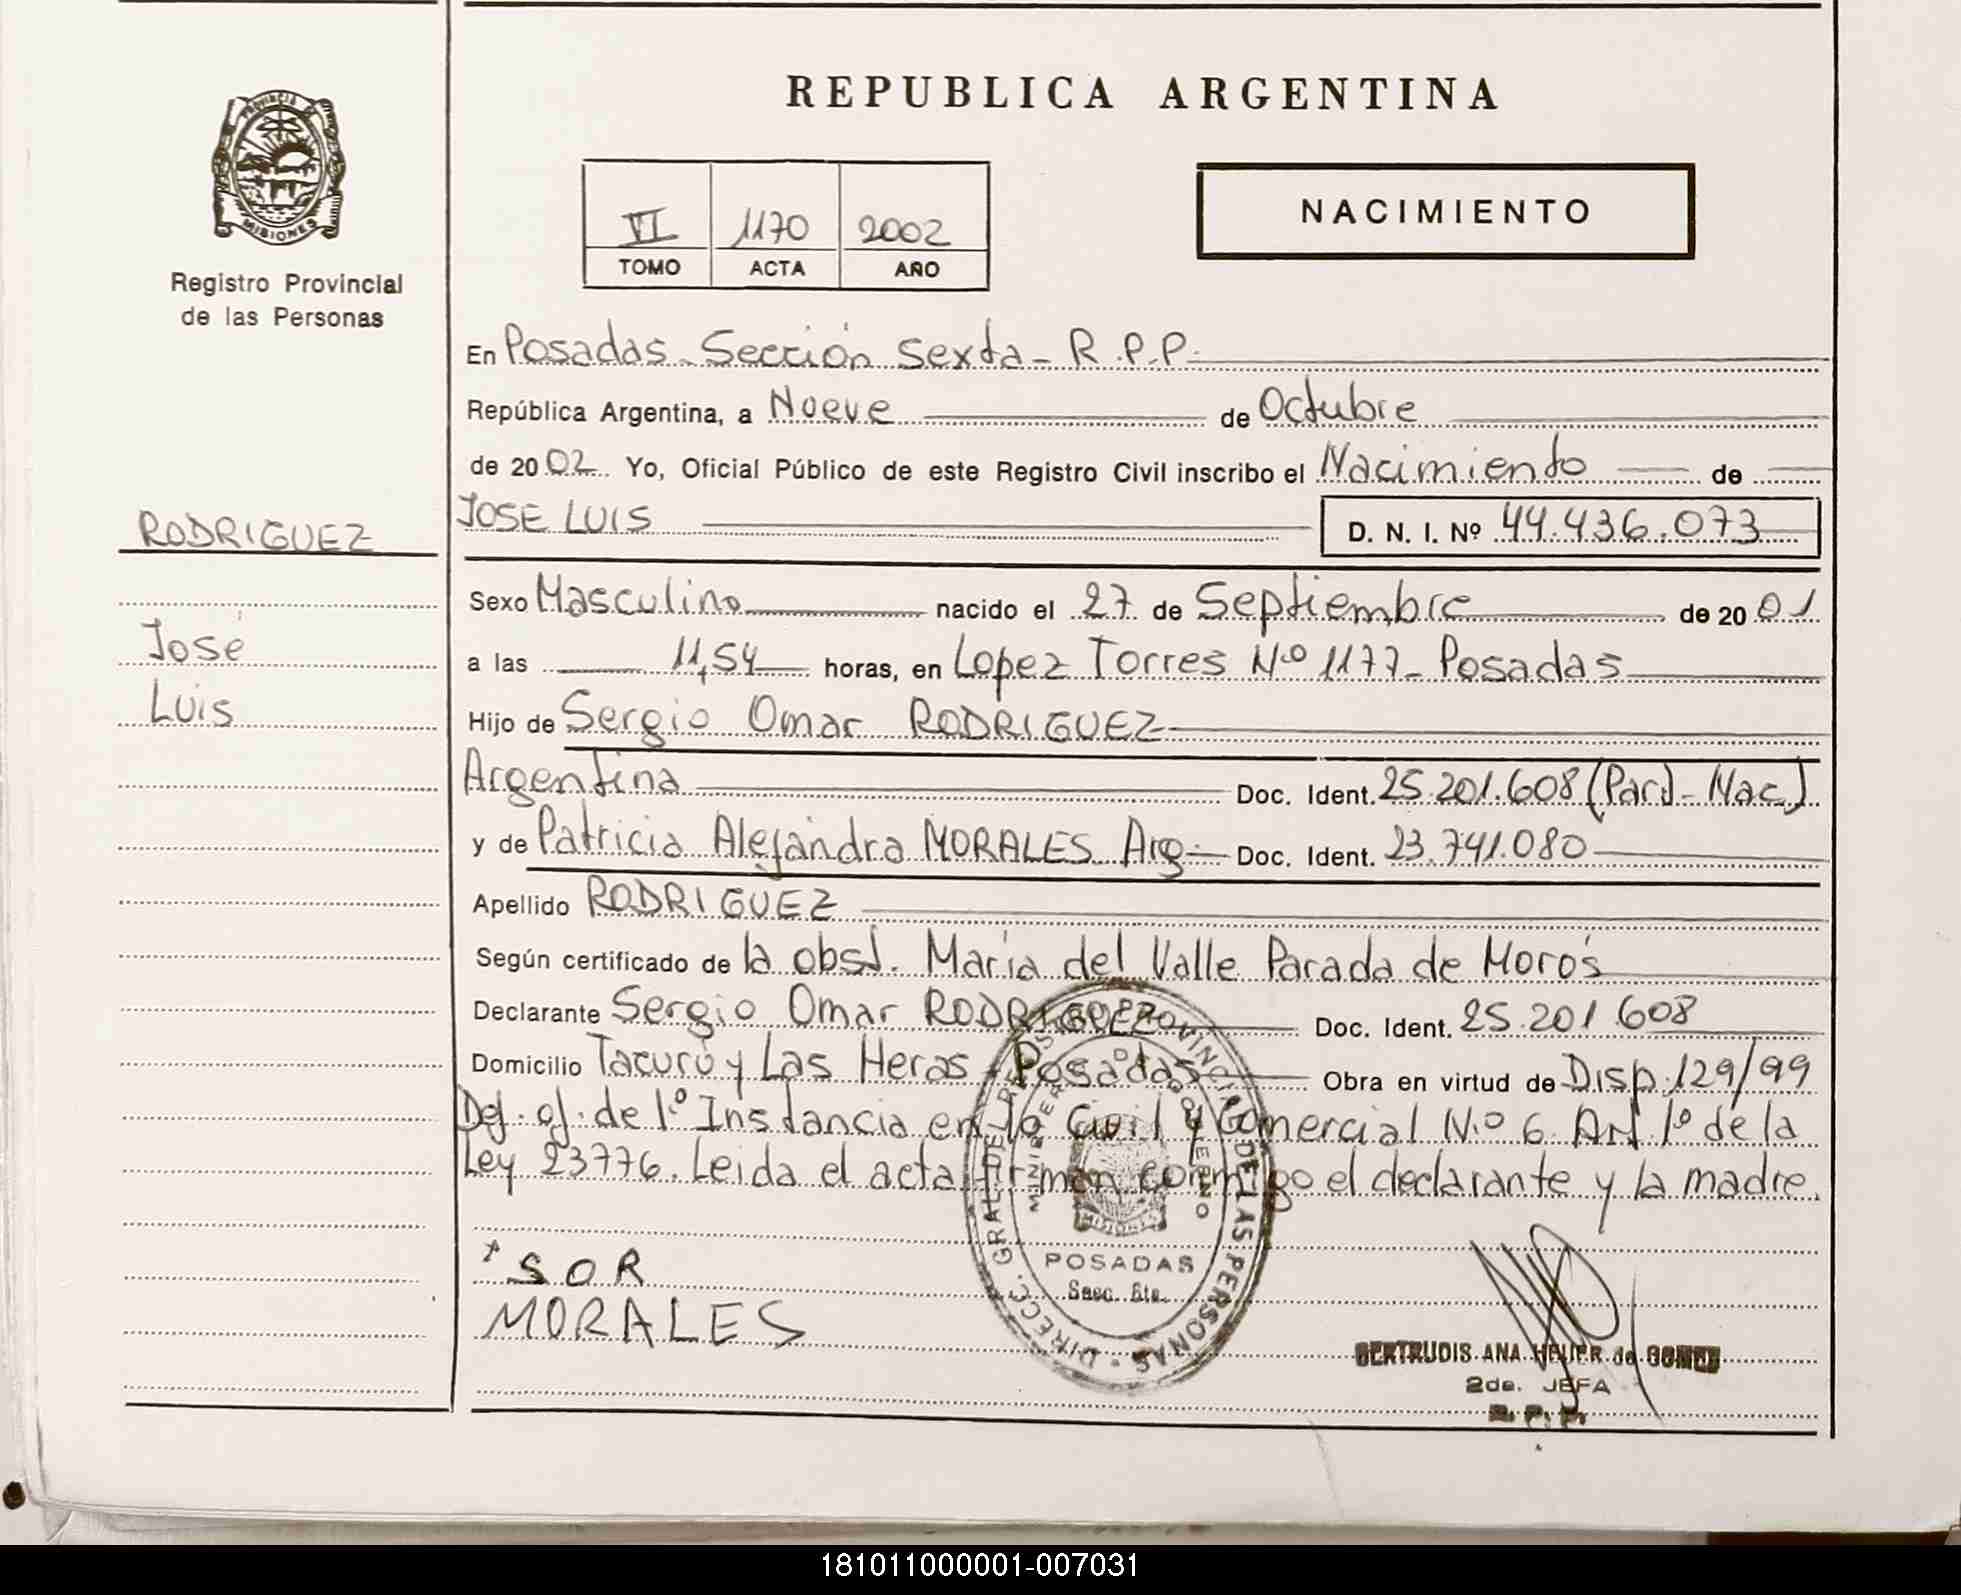 REPUBLICA ARGENTINA
PROVINCIA DE
MISIONES
Registro Provincial
de las Personas
VI 1170 2002
TOMO ACTA AÑO
NACIMIENTO
En Posadas - Sección Sexta - R.P.P.
República Argentina, a Nueve de Octubre
de 2002 Yo, Oficial Público de este Registro Civil inscribo el Nacimiento de
RODRIGUEZ
José
Luis
JOSE LUIS D. N. I. Nº 44.436.073
Sexo Masculino nacido el 27 de Septiembre de 2001
a las 11,54 horas, en Lopez Torres Nº 1177 - Posadas
Hijo de Sergio Omar RODRIGUEZ
Argentina Doc. Ident. 25.201.608 (Pard - Nac)
y de Patricia Alejandra MORALES Arg. Doc. Ident. 23.741.080
Apellido RODRIGUEZ
Según certificado de la obst. María del Valle Parada de Morós
Declarante Sergio Omar RODRIGUEZ Doc. Ident. 25.201.608
Domicilio Tacurú y Las Heras - Posadas Obra en virtud de Disp. 129/99
Def. of. de 1º Instancia en lo Civil y Comercial Nº 6 Art 1º de la
Ley 23776. Leida el acta firman conmigo el declarante y la madre.
SOR
MORALES
DIRECC. GRAL DEL REGISTRO PROVINCIAL DE LAS PERSONAS
MINISTERIO DE GOBIERNO
MISIONES
POSADAS
Secc. 6ta.
GERTRUDIS ANA de
2da. JEFA
R. P. P.
181011000001-007031